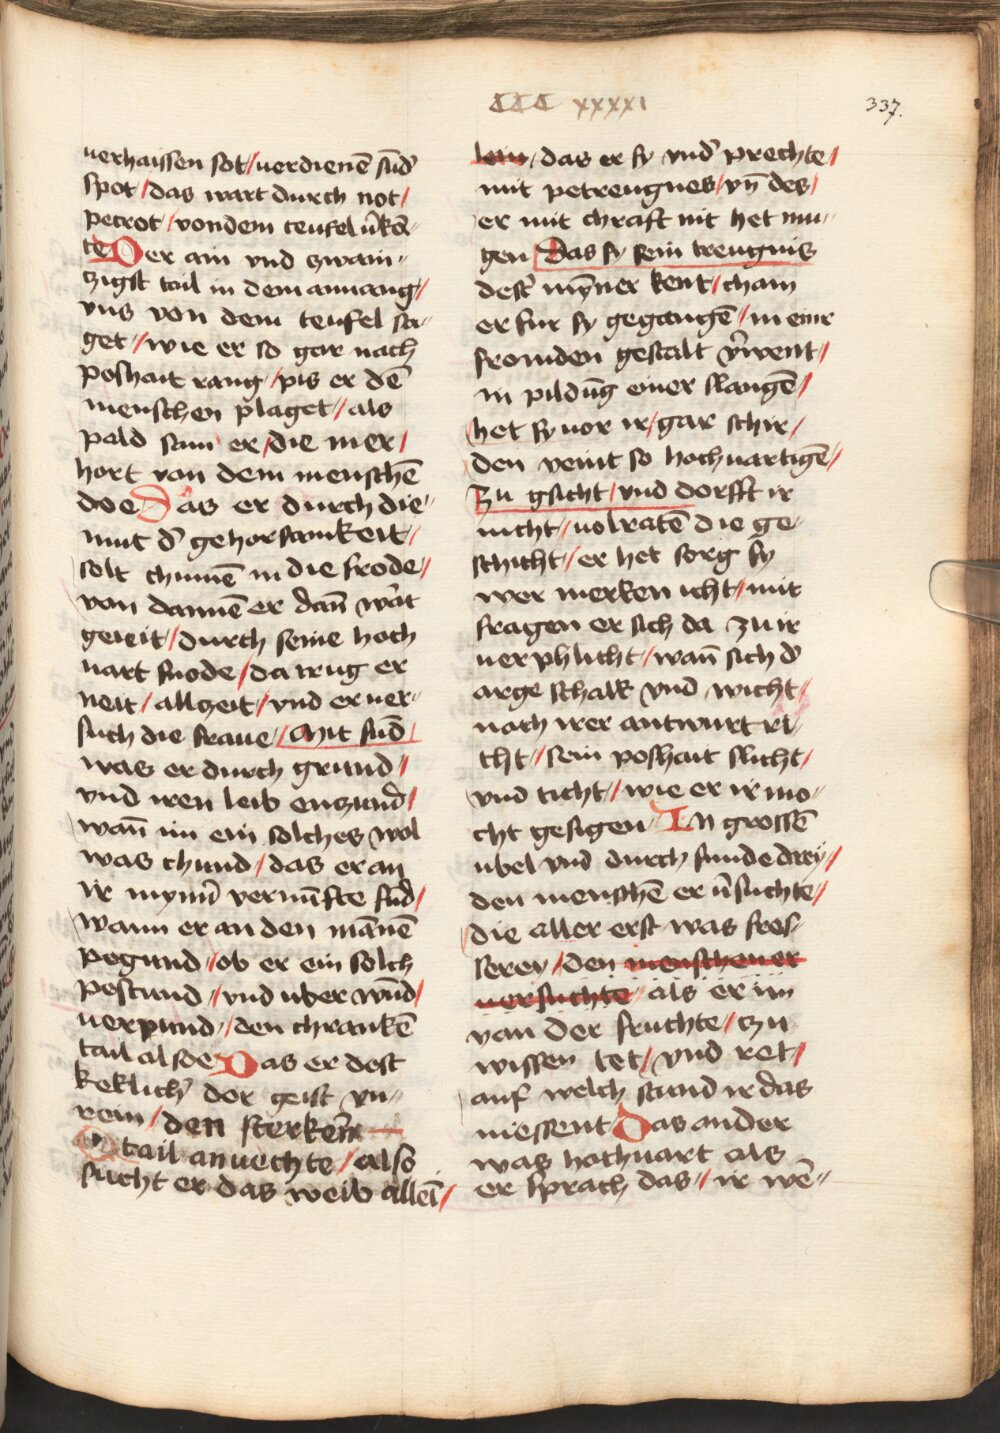 CCC xxxxi
337.
uerhaissen sot / uerdienē sūd̕
spot / das wart durch not /
petrot / von dem teufel v̄kē-
te Der ain vnd zwain-
zigst tail in dem annang /
vns von dem teufel sa-
get / wie er so gar nach
poshait rang / pis er dē
menschen plaget / als
pald sam er / die mer /
hort von dem menschē
doe Das er durch die-
mut d̕ gehorsamkeit /
solt chumē in die frode /
von dannē er dan̄ wart
geieit / durch seine hoch
uart snode / da trug er
neit / allzeit / vnd er uer-
such die fraue / Mit sūd
was er durch grund /
vnd iren leib enzund /
wan̄ im ein solches wol
was chund / das er an
ir mynn̄ vernūfte fūd /
wann er an den mānē
pegund / ob er ein solch
pestund / vnd uber wūd /
uerpund / den chrankē
tail alsoe Das er dest
keklich̕ der geist vn-
rein / den sterkern
tail anuechte / also
sucht er das weib allei /
lein / das er sy vnd̕ prechte /
mit petreugnes / vn̄ des /
er mit chraft nit het mu-
gen Das sy sein treugnis
dest̕ mȳner kent / cham
er fur sy gegangē / in einr
fromden gestalt v̄went /
in pildūg einer slangē /
het sy uor ir / gar schir /
den veint so hochuartigē /
Zu gsicht / vnd dorfft ir
nicht / uolratē die ge-
schicht / er het sorg sy
wer merken icht / mit
fragen er sich da zu ir
uerphlicht / wan̄ sich d̕
arge schalk vnd wicht /
nach irer antwurt ri-
cht / sein poshait slicht /
vnd ticht / wie er ir mo-
cht gesigen In grossē
ubel vnd durch sunde drey /
den menschē er v̄suchte /
die aller erst was fres-
serey / den menschen er
uersuchte als er im
van der fruchte / zu
wissen tet / vnd ret /
auf welch stund ir das
niessent Das ander
was hochuart als
er sprach das / ir wē-